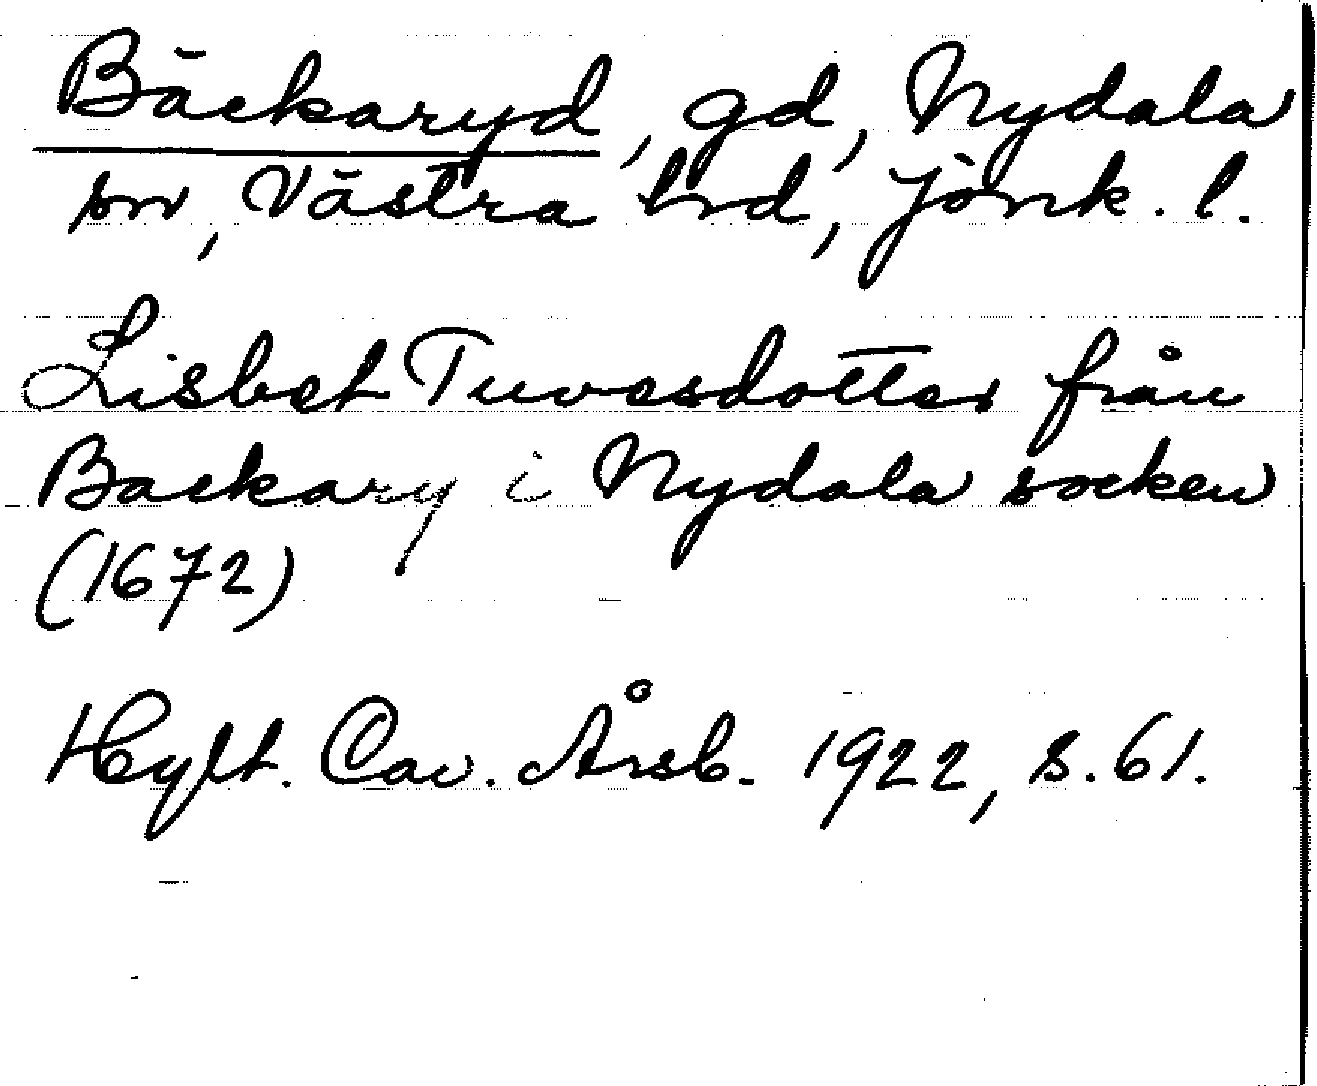 Bäckaryd, gd, Nydala
sn, Västra hrd, Jönk. l.
Lisbet Tuvesdotter från
Backary i Nydala socken
(1672)
Hylt. Cav. Årsb. 1922, s. 61.